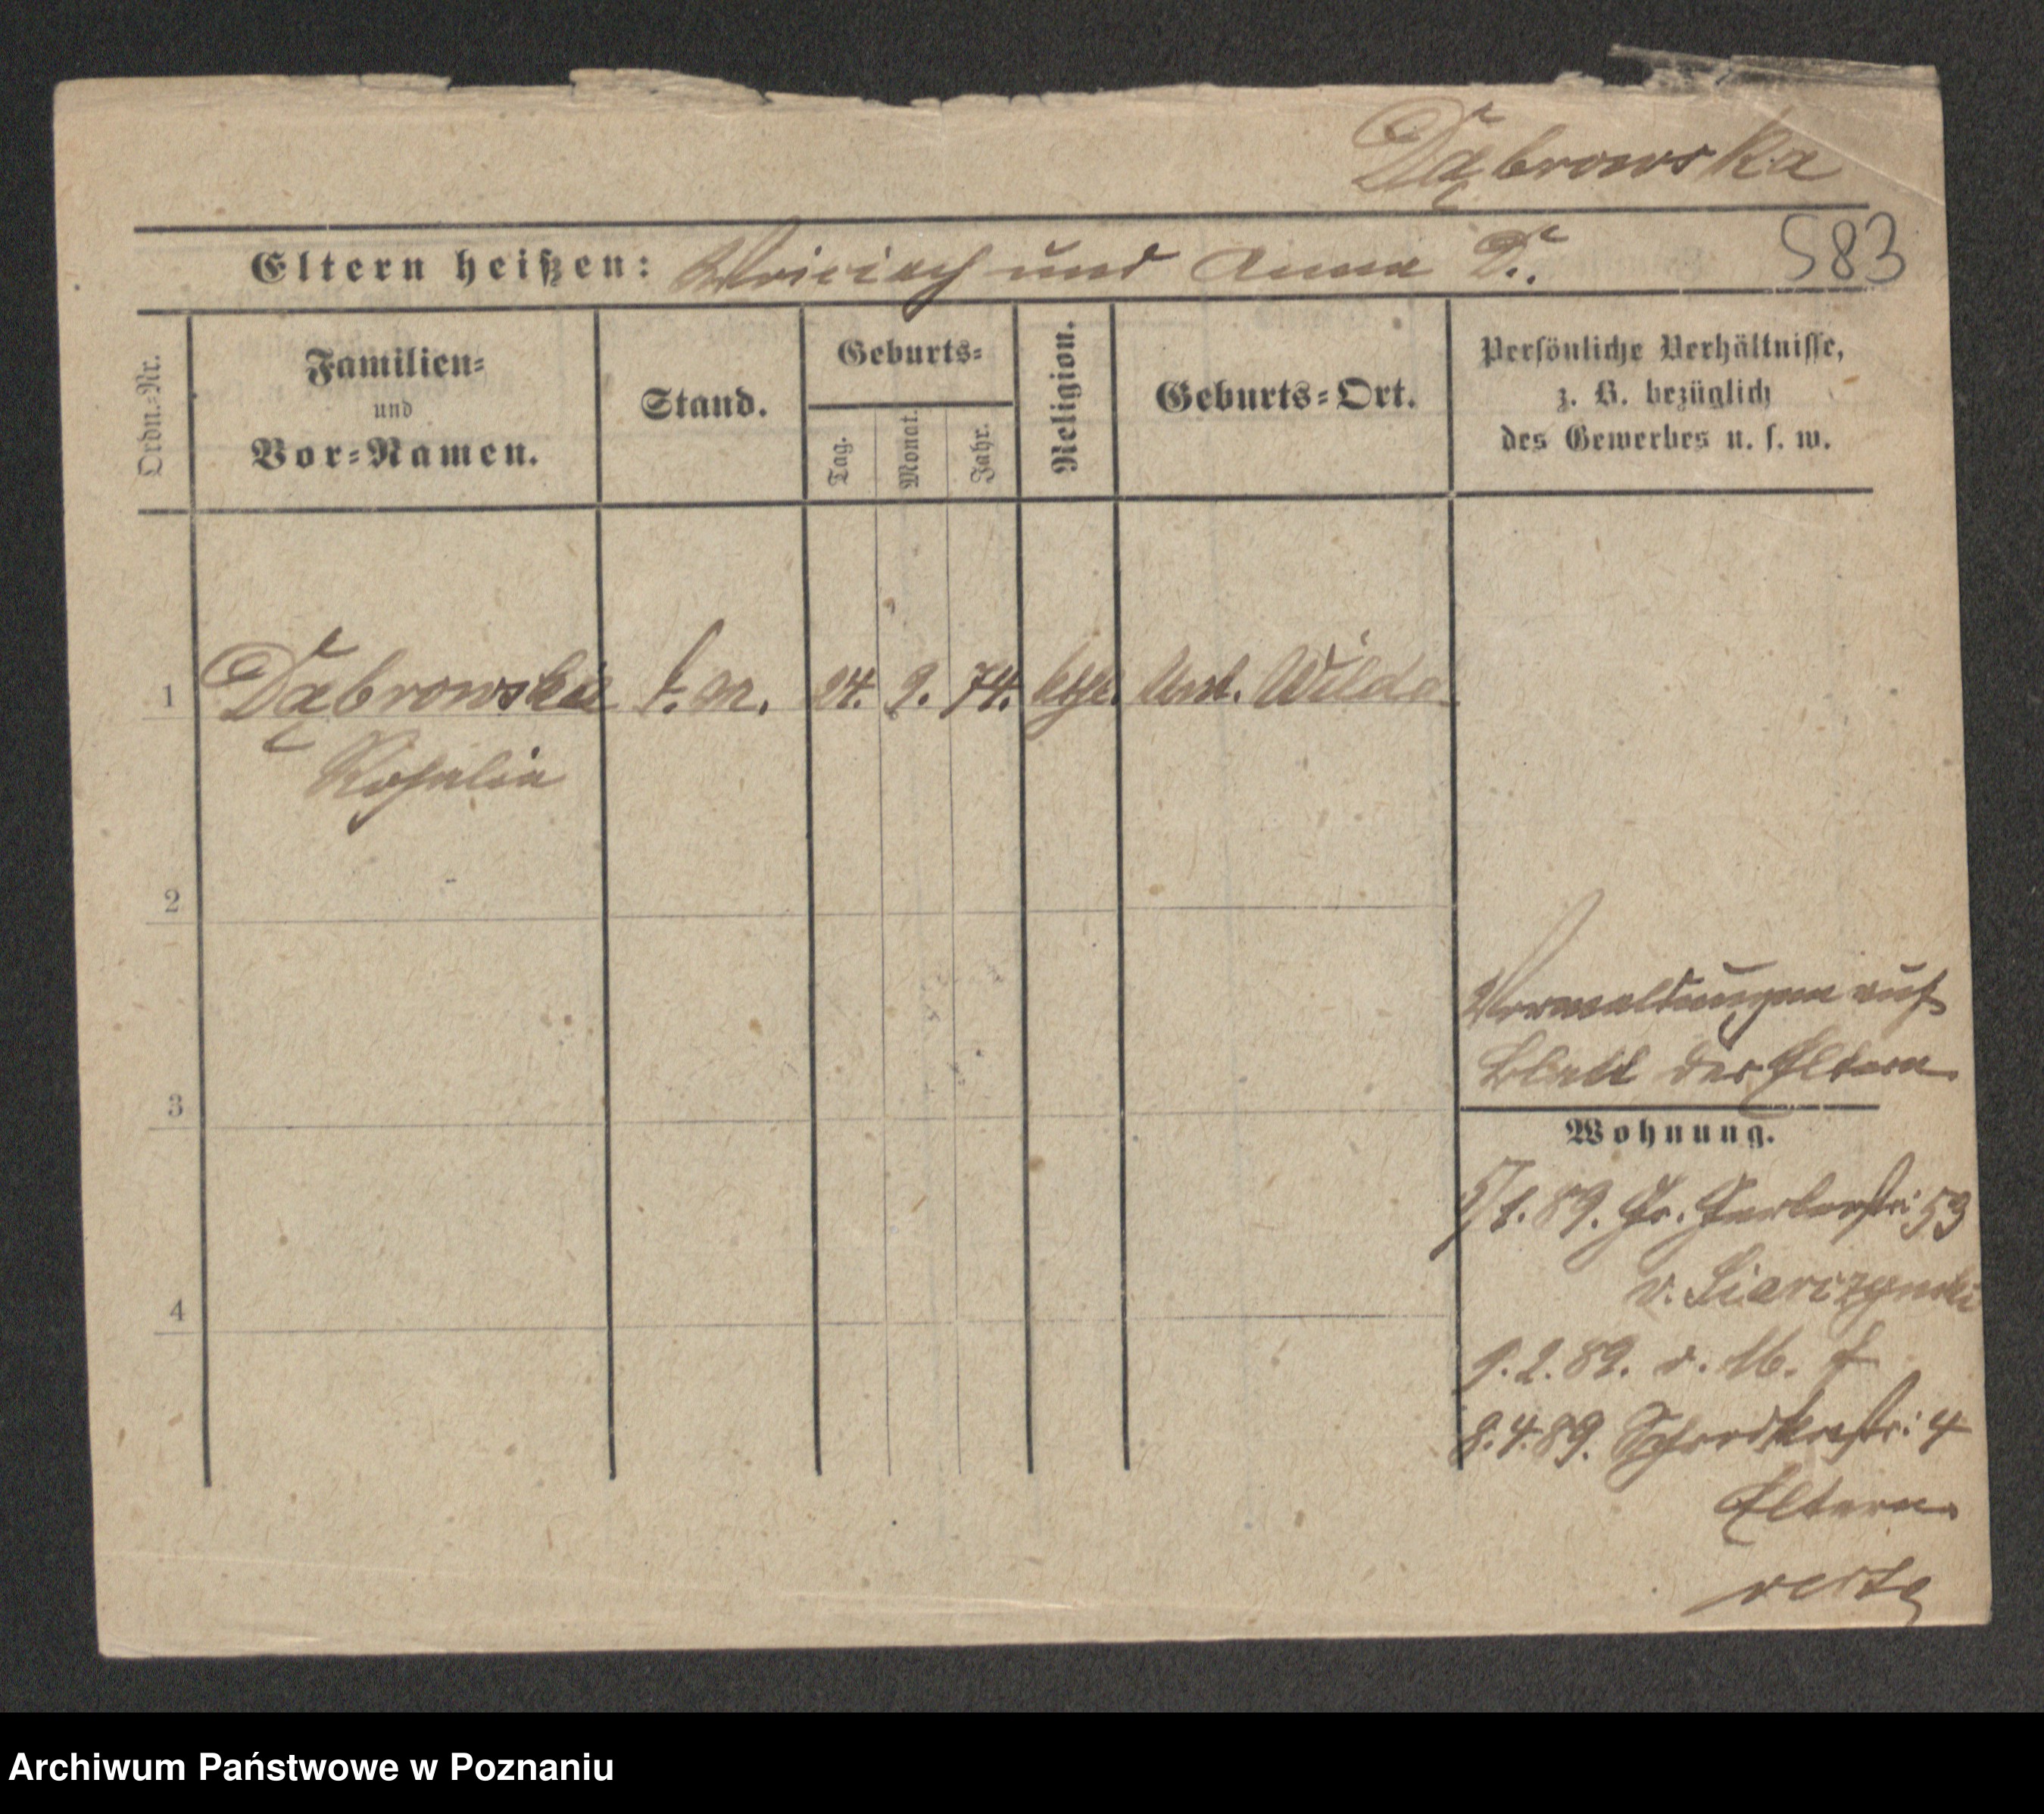 Dąbrowska
Eltern heißen: Woiciech und Anna D.
583
Ordn.-Nr.
Familien-
und
Vor-Namen.
Stand.
Geburts-
Tag.
Monat.
Jahr.
Religion.
Geburts-Ort.
Persönliche Verhältnisse,
z. B. bezüglich
des Gewerbes u. s. w.
1 Dąbrowska 24. 9. 74. kth. Unt. Wilda
Rosalie
2
3
4
Vermeldungen auf
Blatt der Eltern
Wohnung.
5/1. 89. Gr. Gerberstr: 53
v. Siarczynski
9. 2. 89. v. M.
8. 4. 89. Schrodkastr: 4
Eltern
verte